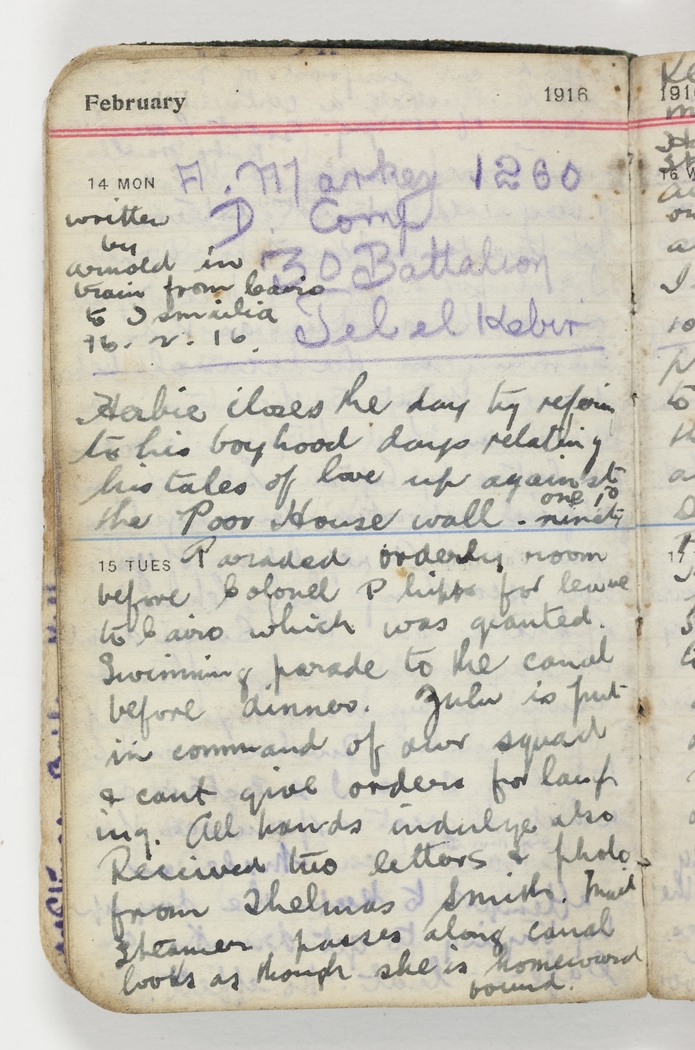 February 1916
14 MON A. Markey 1260
D. Comp
30 Battalion
Tel el Kebir
written
by
arnold in
train from Cairo
to Ismailia
16. 2. 16.
Herbie closes the day by refering
to his boyhood days relating
his tales of love up against
the Poor House wall. ninety
one
15 TUES Paraded orderly room
before Colonel Phipps for leave
to Cairo which was granted.
Swimming parade to the canal
before dinner. Zulu is put
in command of our squad
& cant give orders for lauf
ing. All hands indulge also
Received two letters & photo
from Thelmas Smith. Mail
Steamer passes along canal
looks as though she is homeward
bound.